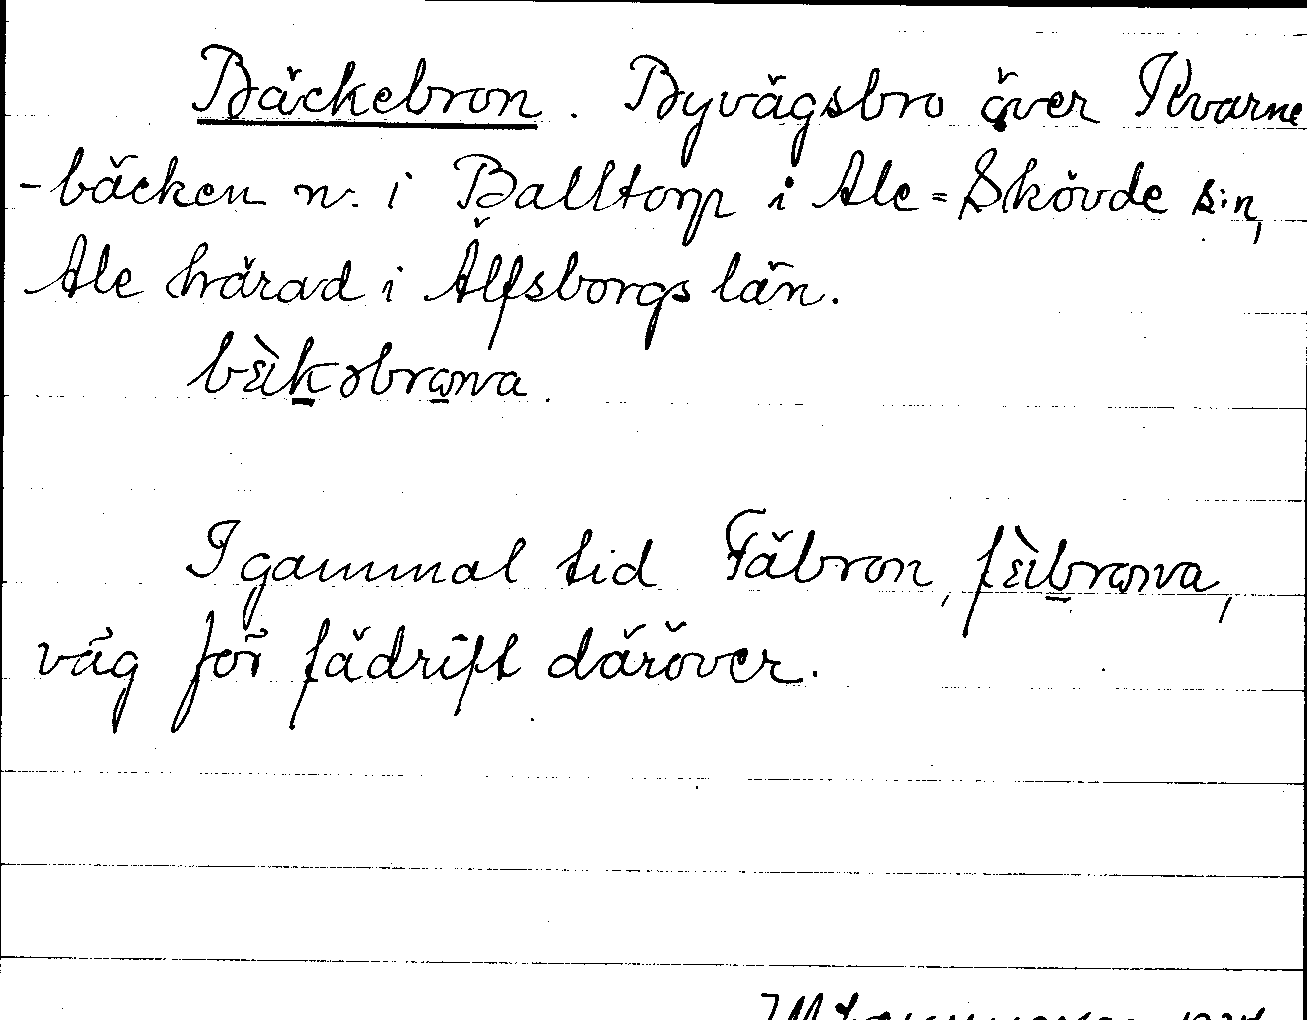 Bäckebron. Byvägsbro över Kvarne
-bäcken n. i Balltorp i Ale-Skövde s:n,
Ale härad i Älfsborgs län.
I gammal tid Fäbron,
väg för fädrift däröver.